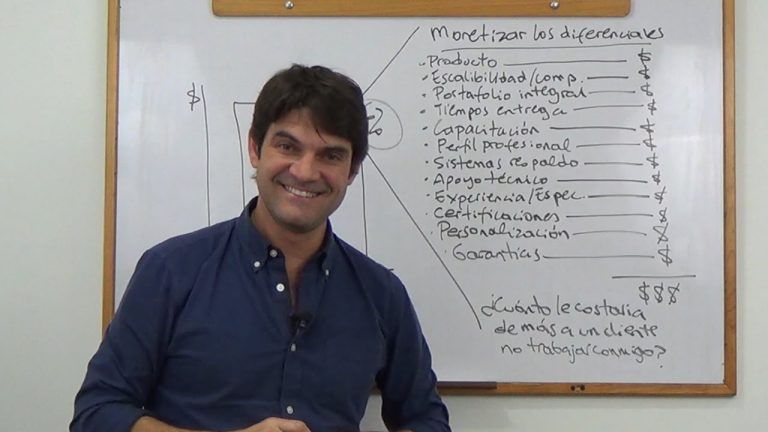 Monetizar los diferenciales
• Producto $
• Escalibilidad/comp. $
• Portafolio integral $
• Tiempos entrega $
• Capacitación $
• Perfil profesional $
• Sistemas respaldo $
• Apoyo técnico $
• Experiencia/Espec. $
• Certificaciones $
• Personalización $
• Garantías $
$$$
¿Cuánto le costaría
de más a un cliente
no trabajar conmigo?
$
%